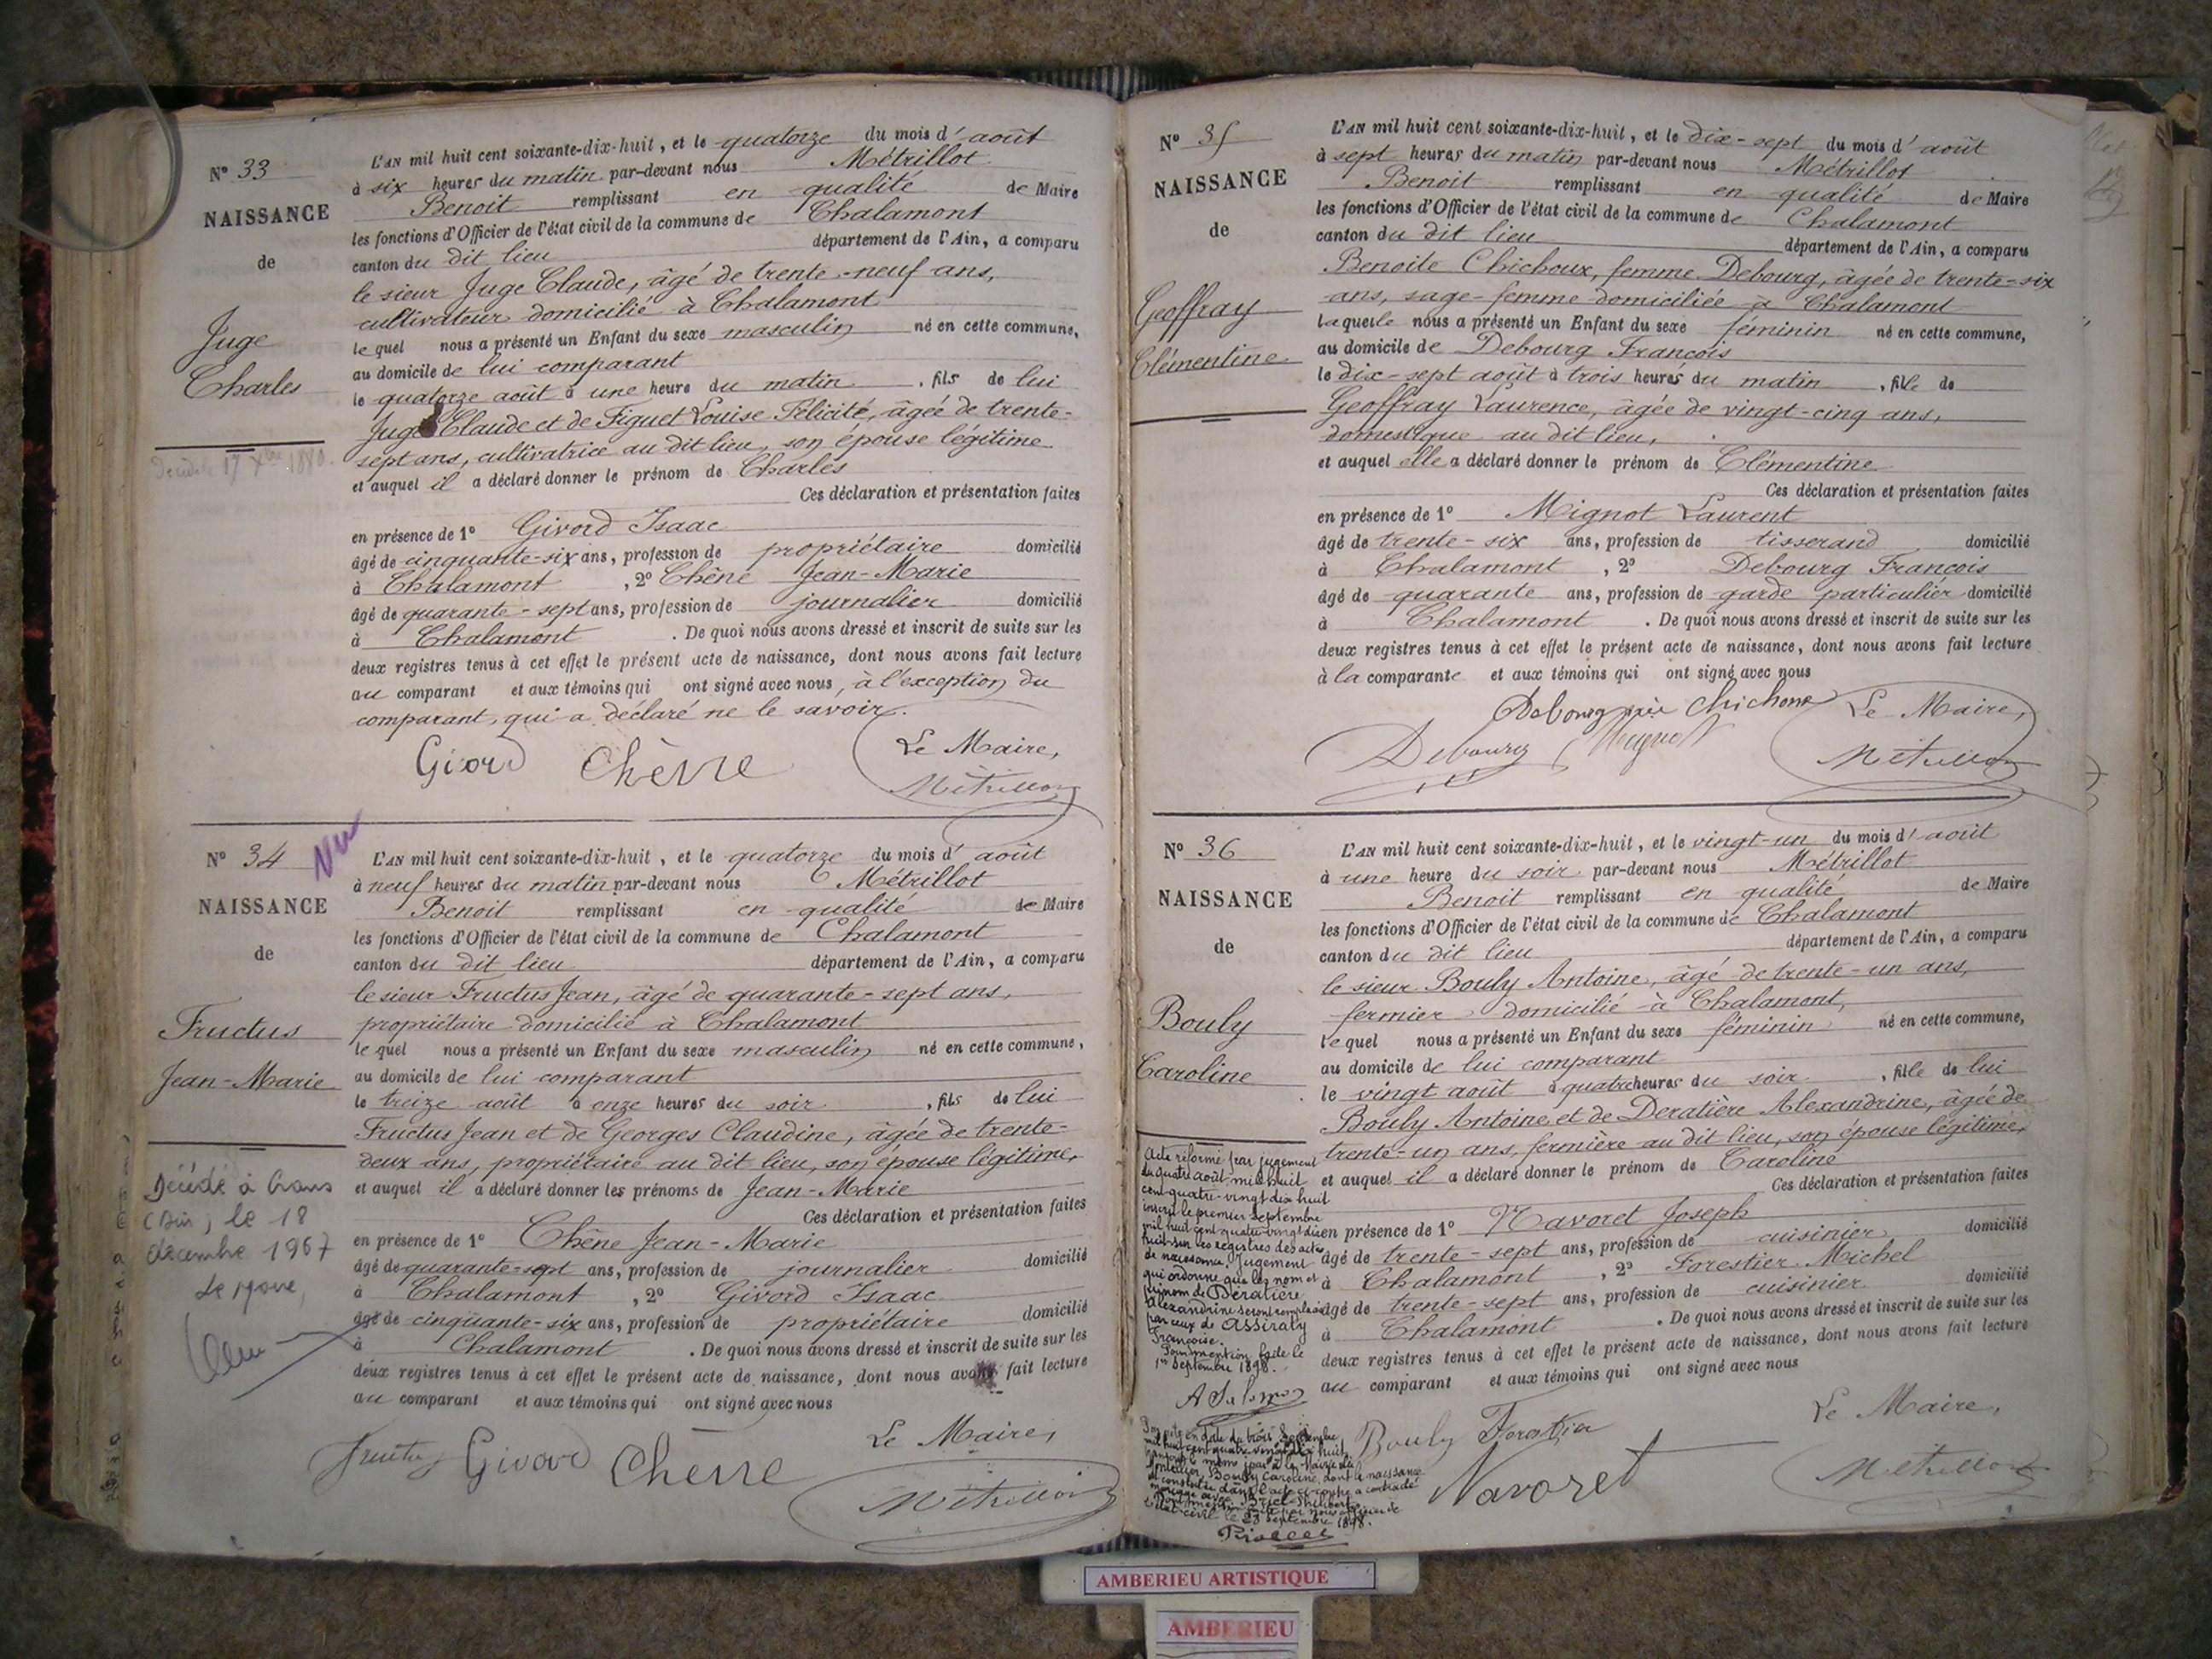 N° 33
NAISSANCE
de
Juge
Charles
Décédé 17 Xbre 1880.
L'AN mil huit cent soixante-dix-huit, et le quatorze du mois d'août
à six heures du matin par-devant nous Métrillot
Benoit remplissant en qualité de Maire
les fonctions d'Officier de l'état civil de la commune de Chalamont
canton du dit lieu département de l'Ain, a comparu
le sieur Juge Claude, âgé de trente-neuf ans,
cultivateur domicilié à Chalamont
lequel nous a présenté un Enfant du sexe masculin né en cette commune,
au domicile de lui comparant
le quatorze août à une heure du matin, fils de lui
Juge Claude et de Figuet Louise Félicité, âgée de trente-
sept ans, cultivatrice au dit lieu, son épouse légitime
et auquel il a déclaré donner le prénom de Charles
Ces déclaration et présentation faites
en présence de 1° Givord Isaac
âgé de cinquante-six ans, profession de propriétaire domicilié
à Chalamont, 2° Chêne Jean-Marie
âgé de quarante-sept ans, profession de journalier domicilié
à Chalamont. De quoi nous avons dressé et inscrit de suite sur les
deux registres tenus à cet effet le présent acte de naissance, dont nous avons fait lecture
au comparant et aux témoins qui ont signé avec nous, à l'exception du
comparant, qui a déclaré ne le savoir.
Giord Chêne Le Maire,
Métrillot
N° 34
NAISSANCE
de
Fructus
Jean-Marie
Décédé à Crans
(Ain) le 18
décembre 1967
Le Maire,
L'AN mil huit cent soixante-dix-huit, et le quatorze du mois d'août
à neuf heures du matin par-devant nous Métrillot
Benoit remplissant en qualité de Maire
les fonctions d'Officier de l'état civil de la commune de Chalamont
canton du dit lieu département de l'Ain, a comparu
le sieur Fructus Jean, âgé de quarante-sept ans,
propriétaire domicilié à Chalamont
lequel nous a présenté un Enfant du sexe masculin né en cette commune,
au domicile de lui comparant
le treize août à onze heures du soir, fils de lui
Fructus Jean et de Georges Claudine, âgée de trente-
deux ans, propriétaire au dit lieu, son épouse légitime,
et auquel il a déclaré donner les prénoms de Jean-Marie
Ces déclaration et présentation faites
en présence de 1° Chêne Jean-Marie
âgé de quarante-sept ans, profession de journalier domicilié
à Chalamont, 2° Givord Isaac
âgé de cinquante-six ans, profession de propriétaire domicilié
à Chalamont. De quoi nous avons dressé et inscrit de suite sur les
deux registres tenus à cet effet le présent acte de naissance, dont nous avons fait lecture
au comparant et aux témoins qui ont signé avec nous
Le Maire,
Fructus Givord Chêne
Métrillot
N° 35
NAISSANCE
de
Geoffray
Clémentine
L'AN mil huit cent soixante-dix-huit, et le dix-sept du mois d'août
à sept heures du matin par-devant nous Métrillot
Benoit remplissant en qualité de Maire
les fonctions d'Officier de l'état civil de la commune de Chalamont
canton du dit lieu département de l'Ain, a comparu
Benoite Chichoux, femme Debourg, âgée de trente-six
ans, sage-femme domiciliée à Chalamont
laquelle nous a présenté un Enfant du sexe féminin né en cette commune,
au domicile de Debourg François
le dix-sept août à trois heures du matin, fille de
Geoffray Laurence, âgée de vingt-cinq ans,
domestique au dit lieu,
et auquel elle a déclaré donner le prénom de Clémentine
Ces déclaration et présentation faites
en présence de 1° Mignot Laurent
âgé de trente-six ans, profession de tisserand domicilié
à Chalamont, 2° Debourg François
âgé de quarante ans, profession de garde particulier domicilié
à Chalamont. De quoi nous avons dressé et inscrit de suite sur les
deux registres tenus à cet effet le présent acte de naissance, dont nous avons fait lecture
à la comparante et aux témoins qui ont signé avec nous
Debourg née Chichoux Le Maire,
Debourg Mignot Métrillot
N° 36
NAISSANCE
de
Bouly
Caroline
Acte réformé par jugement
du quatre août mil huit
cent quatre-vingt dix huit
inscrit le premier Septembre
mil huit cent quatre-vingt dix
huit sur les registres des actes
de naissance. Jugement
qui ordonne que les nom et
prénom de Deratière
Alexandrine seront remplacés
par ceux de Assiraty
Françoise.
Pour mention faite le
1er Septembre 1898.
mil huit cent quatre vingt dix huit,
Bouly Caroline, dont la naissance
est constatée dans l'acte ci-contre a contracté
mariage avec
l'état-civil le 23 septembre 1898.
L'AN mil huit cent soixante-dix-huit, et le vingt-un du mois d'août
à une heure du soir par-devant nous Métrillot
Benoit remplissant en qualité de Maire
les fonctions d'Officier de l'état civil de la commune de Chalamont
canton du dit lieu département de l'Ain, a comparu
le sieur Bouly Antoine, âgé de trente-un ans,
fermier domicilié à Chalamont,
lequel nous a présenté un Enfant du sexe féminin né en cette commune,
au domicile de lui comparant
le vingt août à quatre heures du soir, fille de lui
Bouly Antoine et de Deratière Alexandrine, âgée de
trente-un ans, fermière au dit lieu, son épouse légitime,
et auquel il a déclaré donner le prénom de Caroline
Ces déclaration et présentation faites
en présence de 1° Navoret Joseph
âgé de trente-sept ans, profession de cuisinier domicilié
à Chalamont, 2° Forestier Michel
âgé de trente-sept ans, profession de cuisinier domicilié
à Chalamont. De quoi nous avons dressé et inscrit de suite sur les
deux registres tenus à cet effet le présent acte de naissance, dont nous avons fait lecture
au comparant et aux témoins qui ont signé avec nous
Le Maire,
Bouly Forestier
Navoret Métrillot
AMBERIEU ARTISTIQUE
AMBERIEU